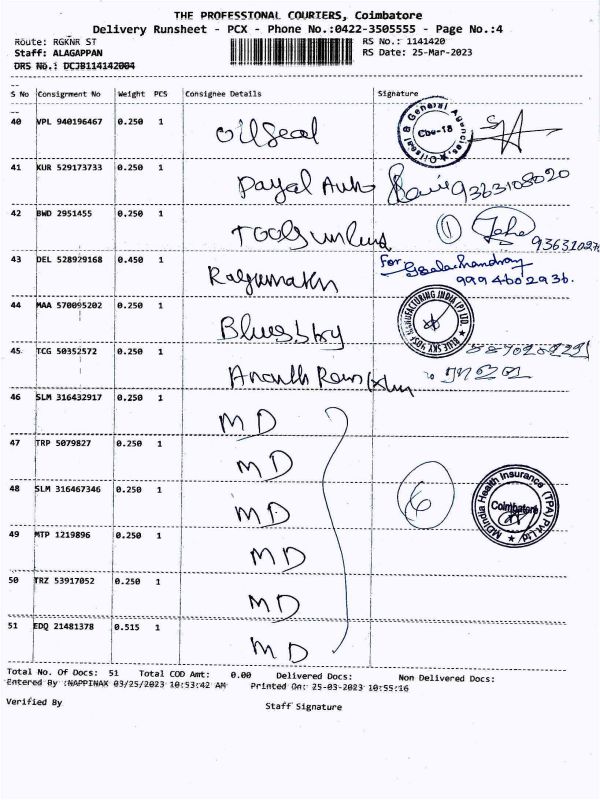 THE PROFESSIONAL COURIERS, Coimbatore
Delivery Runsheet - PCX - Phone No.:0422-3505555 - Page No.:4
Route: RGKNR ST RS No.: 1141420
Staff: ALAGAPPAN RS Date: 25-Mar-2023
DRS No.: DCJB114142004
S No Consignment No Weight PCS Consignee Details Signature
40 VPL 940196467 0.250 1 Oilseal
Oilseal & General Agencies Cbe-18
41 KUR 529173733 0.250 1 Payal Auto 9363108020
42 BWD 2951455 0.250 1 1
43 DEL 528929168 0.450 1 For Gopalachandran
9994602936.
44 MAA 570095202 0.250 1 Bluesky
BLUE SKY MANUFACTURING INDIA (P) LTD.
45 TCG 50352572 0.250 1
46 SLM 316432917 0.250 1 MD
47 TRP 5079827 0.250 1 MD
48 SLM 316467346 0.250 1 MD 6
MDIndia Health Insurance (TPA) Pvt.Ltd. Coimbatore
49 MTP 1219896 0.250 1 MD
50 TRZ 53917052 0.250 1 MD
51 EDQ 21481378 0.515 1 MD
Total No. Of Docs: 51 Total COD Amt: 0.00 Delivered Docs: Non Delivered Docs:
Entered By :NAPPINAX 03/25/2023 10:53:42 AM Printed On: 25-03-2023 10:55:16
Verified By Staff Signature